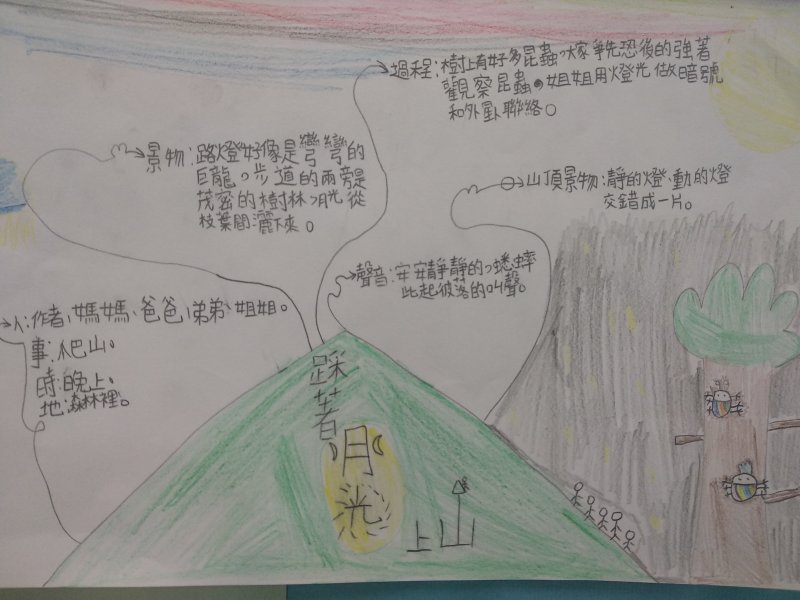 過程:樹上有好多昆蟲,大家爭先恐後的強著
觀察昆蟲。姐姐用燈光做暗號
和外卧聯絡。
景物:路燈好像是彎彎的
巨龍,步道的兩旁是
茂密的樹林,月光從
枝葉間灑下來。
山頂景物:靜的燈、動的燈
交錯成一片。
聲音:安安靜靜的,蟋蟀
此起彼落的叫聲。
人:作者、媽媽、爸爸、弟弟、姐姐。
事:爬山。
時:晚上。
地:森林裡。
踩著
月光
上山